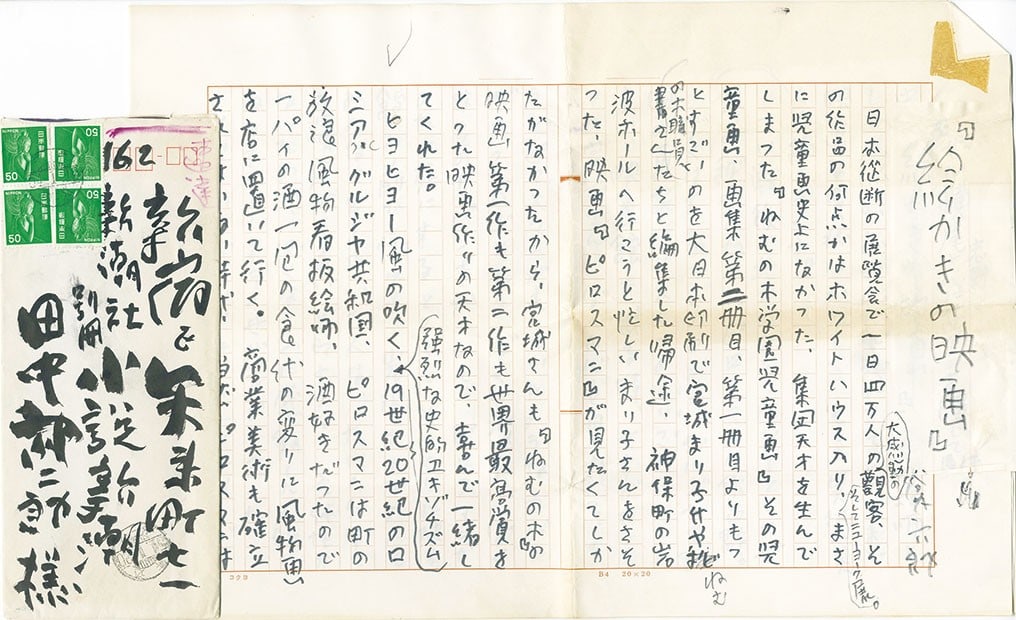 『絵かきの映画』
谷内六郎
日本従断の展覧会で一日四万人の観客、そ
大感動の
そしてニューヨーク展。
の作品の何点かはホワイトハウス入り、まさ
に児童画史上になかった、集団天才を生んで
しまった『ねむの木学園児童画』その児
童画、画集第二冊目、第一冊目よりもっ
とすごいのを大日本印刷で宮城まり子さんや
ねむ
の木職員
書さんたちと編集した帰途、神保町の岩
波ホールへ行こうと忙しいまり子さんをさそ
った、映画『ピロスマニ』が見たくてしか
たがなかったから、宮城さんも『ねむの木』の
映画、第一作も第二作も世界最高賞を
とった映画作りの天才なので、喜んで一緒し
てくれた。
ヒヨヒヨー風の吹く、19世紀20世紀のロ
強烈な史的エキゾチズム
シア、グルジヤ共和国、ピロスマニは町の
放浪風物看板絵師、酒好きだったので
一パイの酒一皿の食代の変りに風物画
を店に置いて行く。商業美術も確立
コクヨ
B4 20×20
162
新宿区矢来町七一
新潮社
別冊
小説新潮
田中
様
50
日本郵便
NIPPON
50
日本郵便
NIPPON
50
日本郵便
NIPPON
50
日本郵便
NIPPON